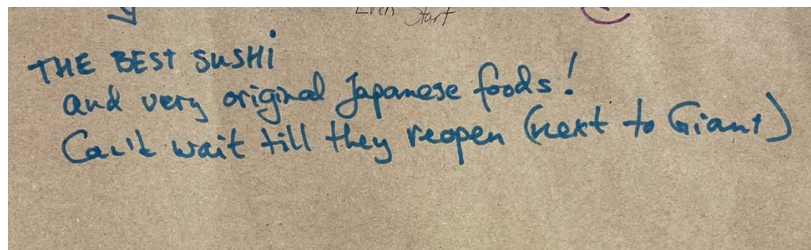 Even Start
THE BEST SUSHI
and very original Japanese foods!
Can't wait till they reopen (next to Giant)